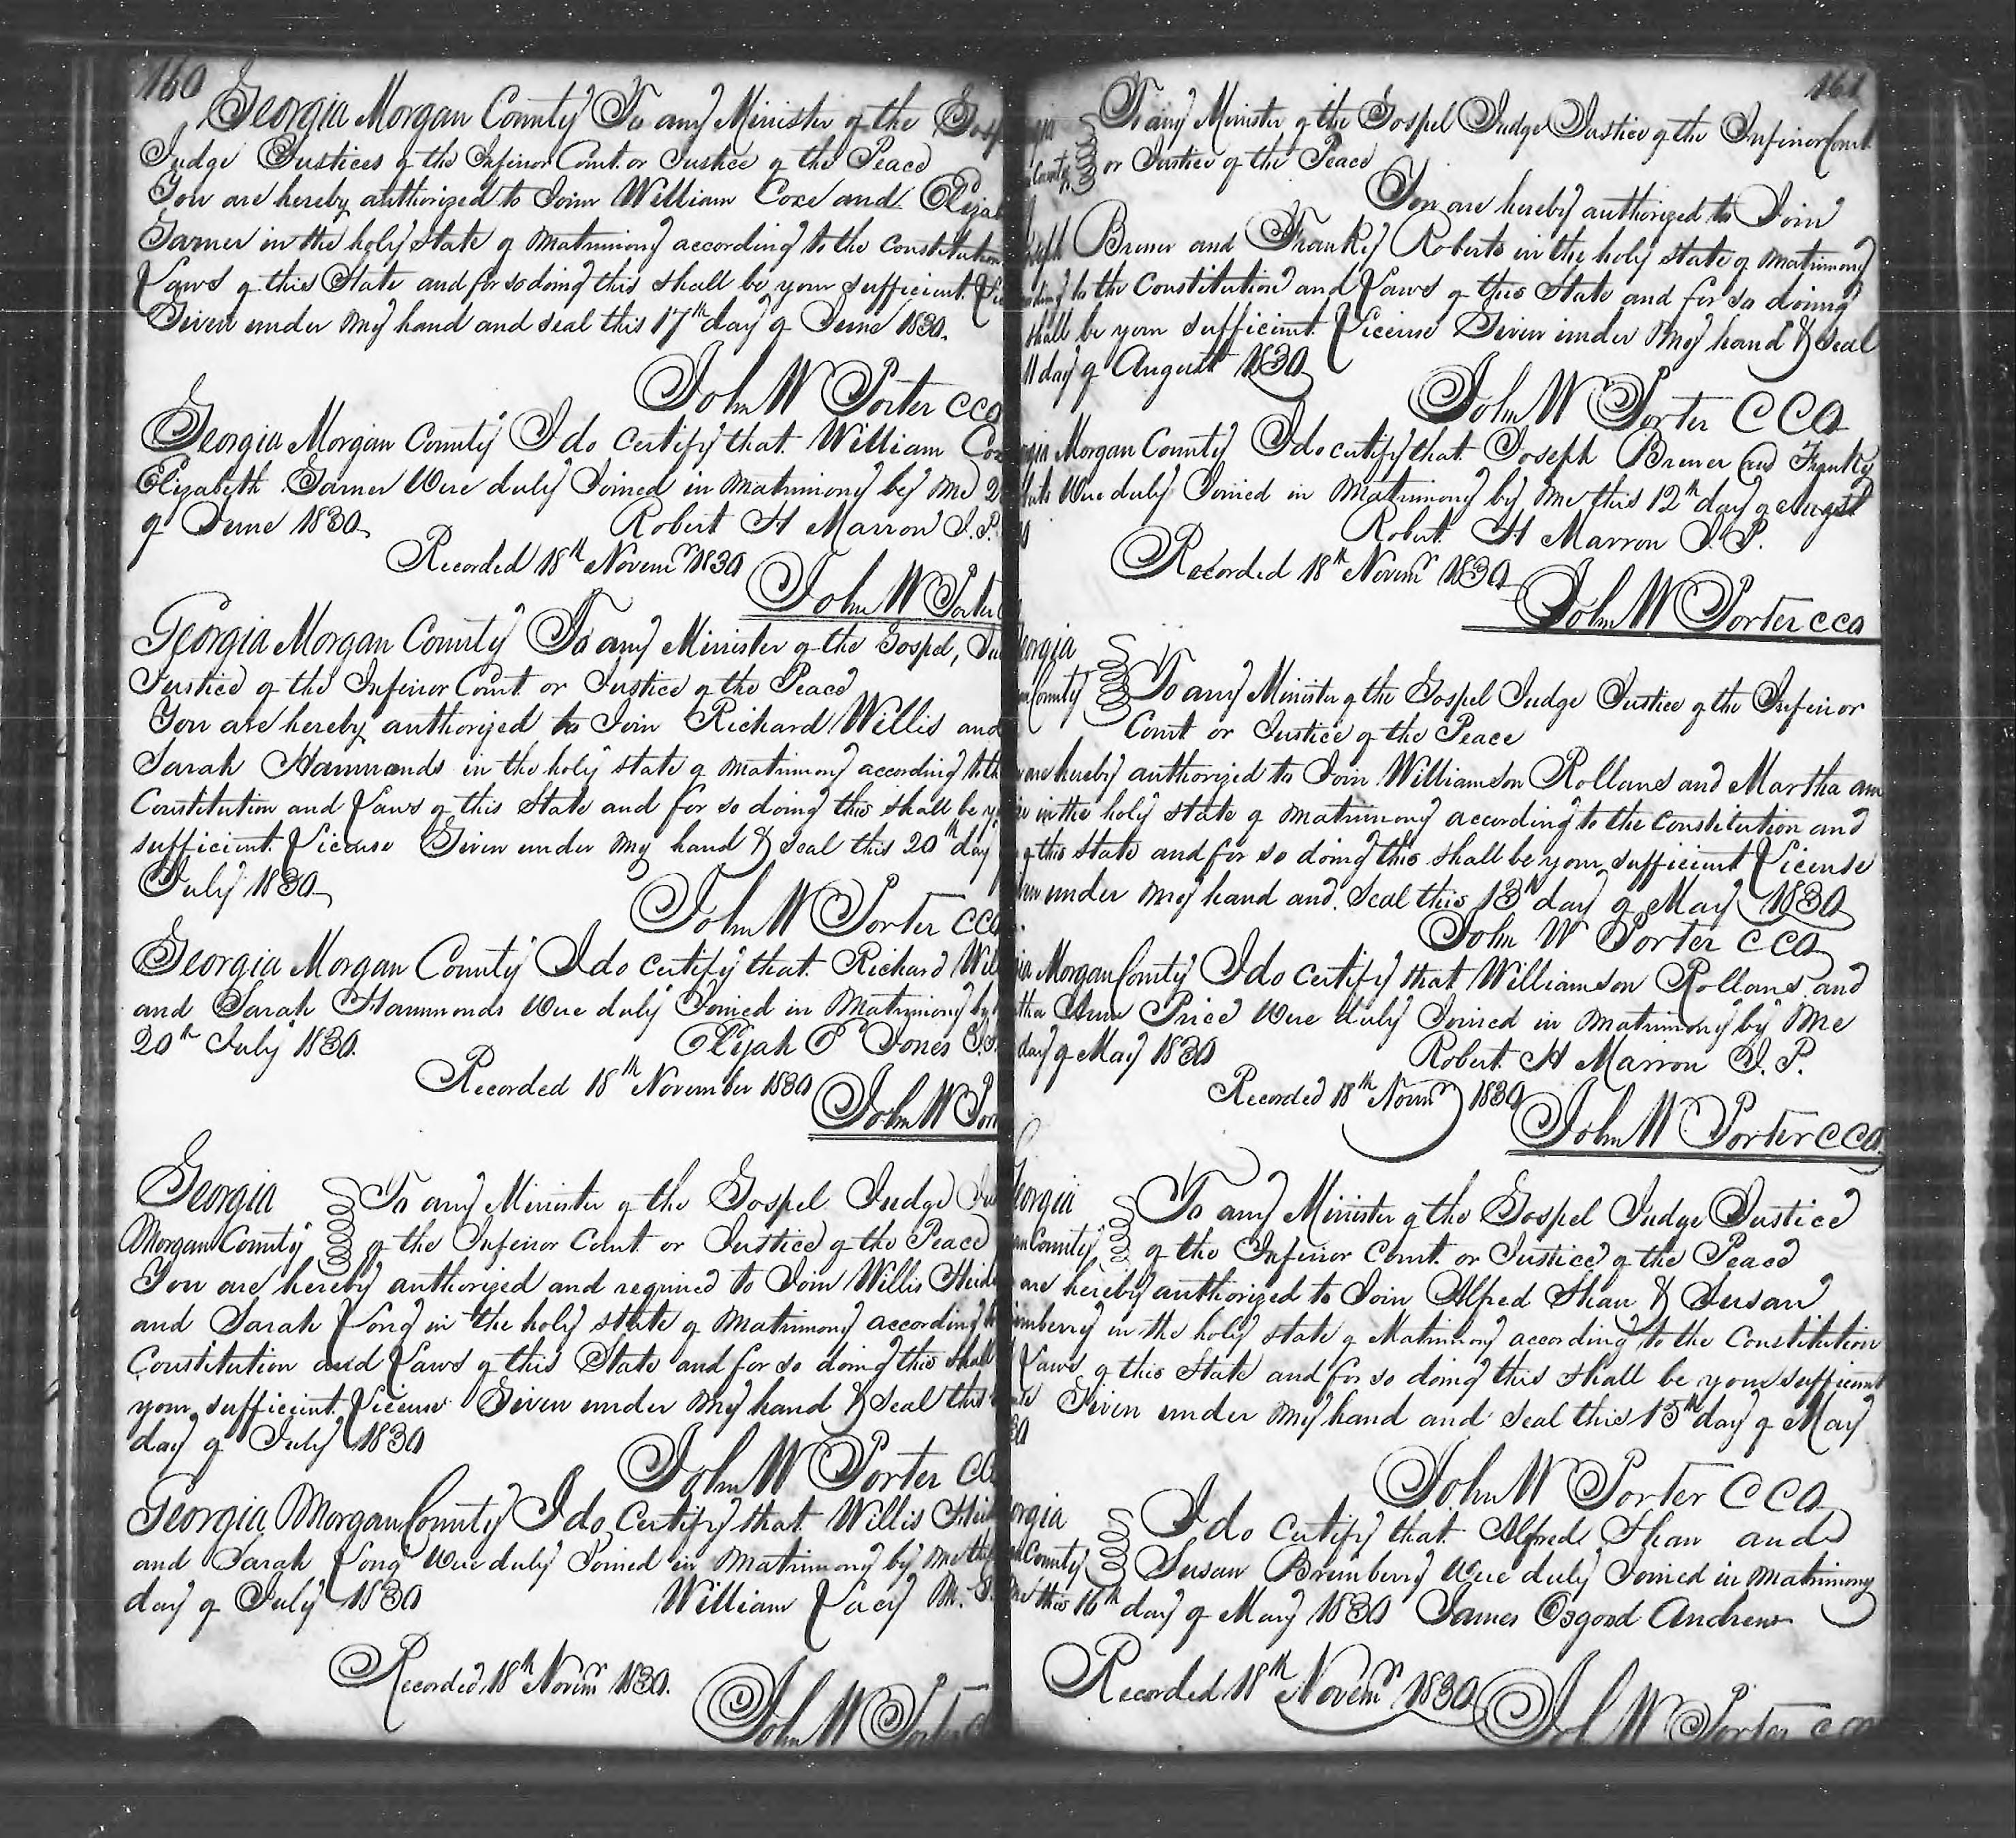 160
Georgia Morgan County To any Minister of the Gosp
Judge Justices of the Inferior Court or Justice of the Peace
You are hereby authorized to Join William Coxe and Elizab
Garner in the holy state of matrimony according to the Constitution
Laws of this State and for so doing this shall be your sufficient Li
Given under my hand and seal this 17th day of June 1830.
John W Porter CCO
Georgia Morgan County I do certify that William Cox
Elizabeth Garner Were duly Joined in matrimony by me 2
of June 1830
Robert H Marron J.P.
Recorded 18th Novemr 1830
John W Porter
Georgia Morgan County To any Minister of the Gospel, Ju
Justice of the Inferior Court or Justice of the Peace
You are hereby authorized to Join Richard Willis and
Sarah Hammonds in the holy state of matrimony according to th
Constitution and Laws of this State and for so doing this shall be y
sufficient License Given under my hand & seal this 20th day
July 1830
John W Porter CCO
Georgia Morgan County I do certify that Richard Will
and Sarah Hammonds were duly Joined in Matrimony by
20th July 1830.
Elijah E Jones J.P.
Recorded 18th November 1830
John W Por
Georgia
Morgan County
To any Minister of the Gospel Judge Ju
of the Inferior Court or Justice of the Peace
You are hereby authorized and required to Join Willis Heid
and Sarah Long in the holy state of matrimony according to
Constitution and Laws of this State and for so doing this shall
your sufficient License Given under my hand & Seal this
day of July 1830
John W Porter CC
Georgia Morgan County I do Certify that Willis Heid
and Sarah Long Were duly Joined in matrimony by me this
day of July 1830
William Lacy M.G.
Recorded 18th Novemr 1830.
John W Porter C
161
gia
County
To any Minister of the Gospel Judge Justice of the Inferior Court
or Justice of the Peace
You are hereby authorized to Join
seph Brewer and Franky Roberts in the holy state of matrimony
ording to the Constitution and Laws of this State and for so doing
shall be your sufficient License Given under my hand & Seal
11 day of August 1830
John W Porter CCO
rgia Morgan County I do certify that Joseph Brewer and Franky
berts Were duly Joined in Matrimony by me this 12th day of August
30
Robert H Marron J.P.
Recorded 18th Novemr 1830
John W Porter CCO
eorgia
n County
To any Minister of the Gospel Judge Justice of the Inferior
Court or Justice of the Peace
are hereby authorized to Join Williamson Rollans and Martha ann
in the holy state of matrimony according to the Constitution and
of this State and for so doing this shall be your sufficient License
en under my hand and Seal this 13th day of May 1830
John W Porter CCO
gia Morgan County I do certify that Williamson Rollans and
tha Ann Price Were duly Joined in matrimony by me
day of May 1830
Robert H Marron J.P.
Recorded 18th Novemr 1830
John W Porter CCO
eorgia
an County
To any Minister of the Gospel Judge Justice
of the Inferior Court or Justice of the Peace
are hereby authorized to Join Alfred Shaw & Susan
imberry in the holy state of Matrimony according to the Constitution
Laws of this State and for so doing this shall be your sufficient
Given under my hand and seal this 15th day of May
30
John W Porter CCO
orgia
County
I do certify that Alfred Shaw and
Susan Brimberry Were duly Joined in matrimony
me this 16th day of May 1830 James Osgood Andrew
Recorded 18th Novemr 1830
John W Porter CCO